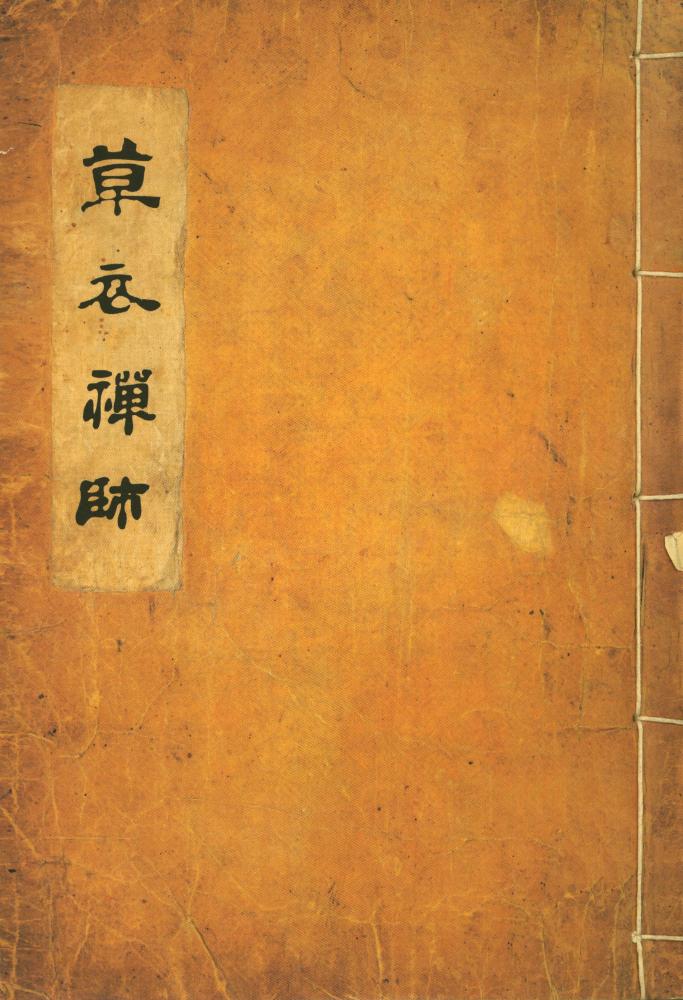 草衣禪師